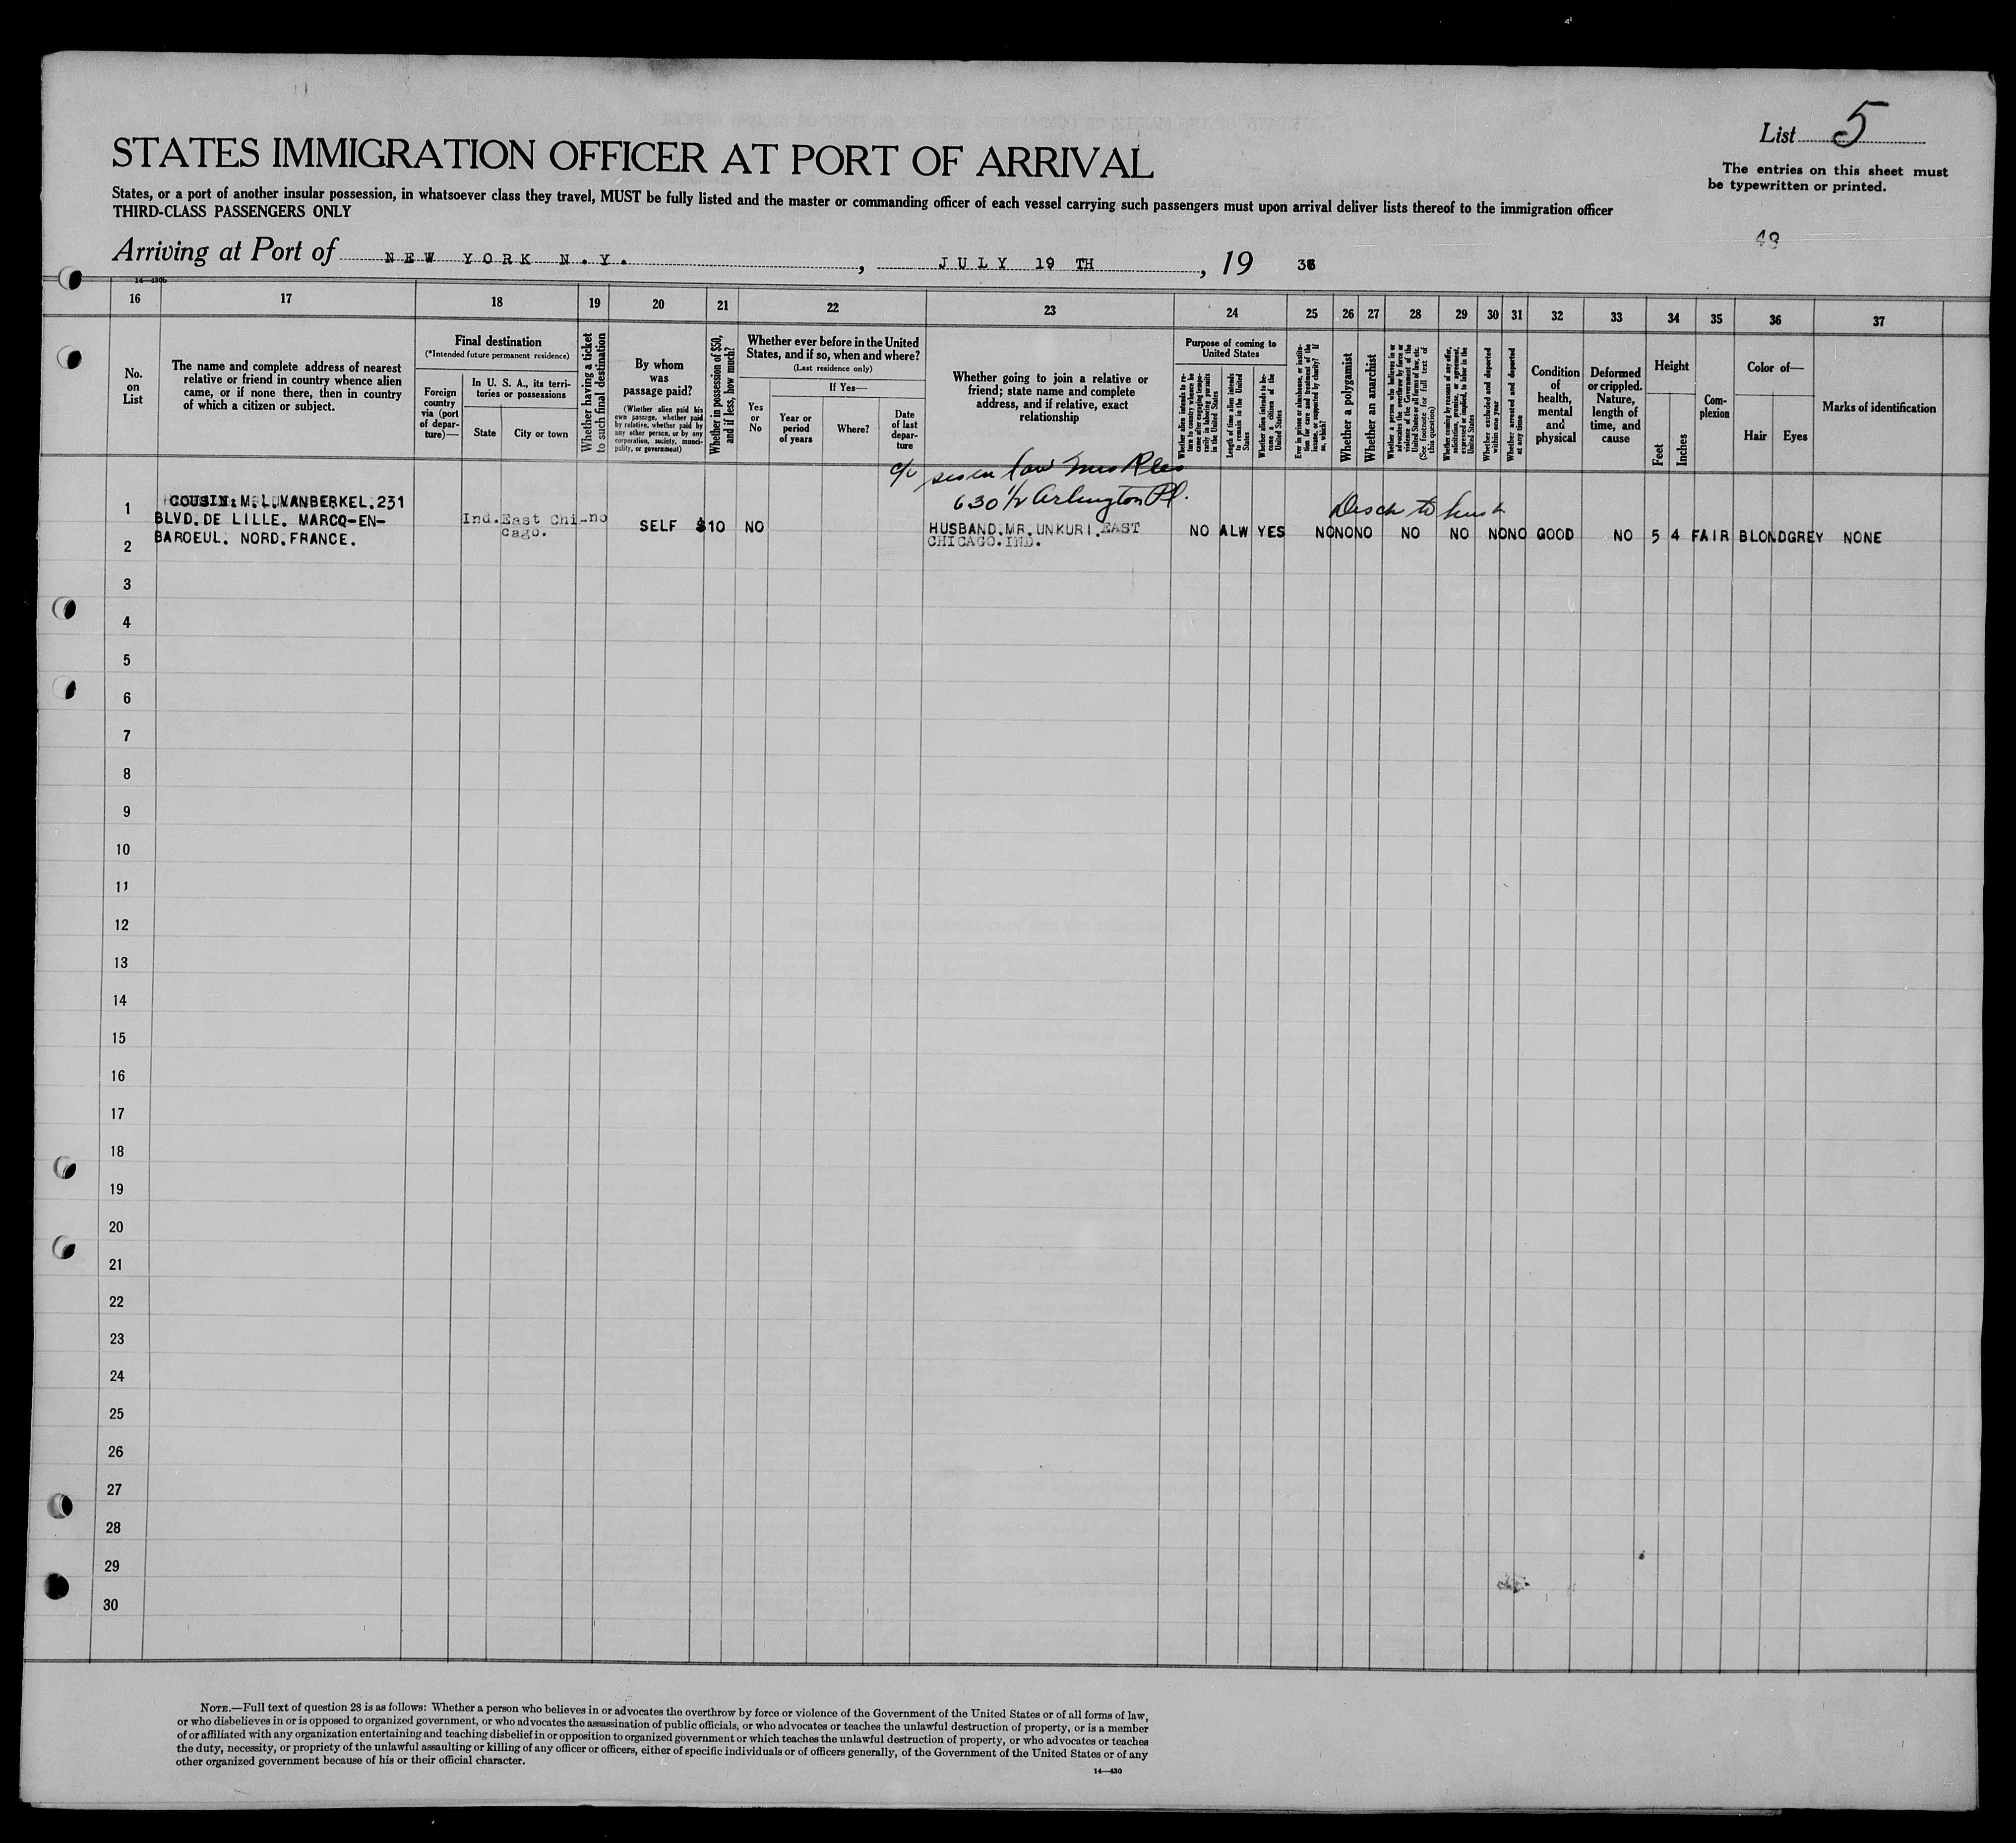 List 5
STATES IMMIGRATION OFFICER AT PORT OF ARRIVAL
The entries on this sheet must
be typewritten or printed.
States, or a port of another insular possession, in whatsoever class they travel, MUST be fully listed and the master or commanding officer of each vessel carrying such passengers must upon arrival deliver lists thereof to the immigration officer
THIRD-CLASS PASSENGERS ONLY
48
Arriving at Port of NEW YORK N.Y. , JULY 19 TH , 19 36
16 17 18 19 20 21 22 23 24 25 26 27 28 29 30 31 32 33 34 35 36 37
No.
on
List
The name and complete address of nearest
relative or friend in country whence alien
came, or if none there, then in country
of which a citizen or subject.
Final destination
(*Intended future permanent residence)
Foreign
country
via (port
of depar-
ture)—
In U. S. A., its terri-
tories or possessions
State
City or town
Whether having a ticket
to such final destination
By whom
was
passage paid?
(Whether alien paid his
own passage, whether paid
by relative, whether paid by
any other person, or by any
corporation, society, munici-
pality, or government)
Whether in possession of $50,
and if less, how much?
Whether ever before in the United
States, and if so, when and where?
(Last residence only)
Yes
or
No
If Yes—
Year or
period
of years
Where?
Date
of last
depar-
ture
Whether going to join a relative or
friend; state name and complete
address, and if relative, exact
relationship
Purpose of coming to
United States
Whether alien intends to re-
turn to country whence he
came after engaging tempo-
rarily in laboring pursuits
in the United States
Length of time alien intends
to remain in the United
States
Whether alien intends to be-
come a citizen of the
United States
Ever in prison or almshouse, or institu-
tion for care and treatment of the
insane, or supported by charity? If
so, which?
Whether a polygamist
Whether an anarchist
Whether a person who believes in or
advocates the overthrow by force or
violence of the Government of the
United States or all forms of law, etc.
(See footnote for full text of
this question)
Whether coming by reasons of any offer,
solicitation, promise, or agreement,
expressed or implied, to labor in the
United States
Whether excluded and deported
within one year
Whether arrested and deported
at any time
Condition
of
health,
mental
and
physical
Deformed
or crippled.
Nature,
length of
time, and
cause
Height
Feet
Inches
Com-
plexion
Color of—
Hair
Eyes
Marks of identification
c/o law Mrs
630 1/2 Arlington Pl.
Disch to husb
1 COUSIN: M.L.VANBERKEL.231
BLVD.DE LILLE. MARCQ-EN-
2 BAROEUL. NORD.FRANCE.
Ind. East Chi-
cago.
no SELF $10 NO
HUSBAND.MR.UNKURI.EAST
CHICAGO.IND.
NO ALW YES NO NO NO NO NO NO NO GOOD NO 5 4 FAIR BLOND GREY NONE
3
4
5
6
7
8
9
10
11
12
13
14
15
16
17
18
19
20
21
22
23
24
25
26
27
28
29
30
NOTE.—Full text of question 28 is as follows: Whether a person who believes in or advocates the overthrow by force or violence of the Government of the United States or of all forms of law,
or who disbelieves in or is opposed to organized government, or who advocates the assassination of public officials, or who advocates or teaches the unlawful destruction of property, or is a member
of or affiliated with any organization entertaining and teaching disbelief in or opposition to organized government or which teaches the unlawful destruction of property, or who advocates or teaches
the duty, necessity, or propriety of the unlawful assaulting or killing of any officer or officers, either of specific individuals or of officers generally, of the Government of the United States or of any
other organized government because of his or their official character.
14—430